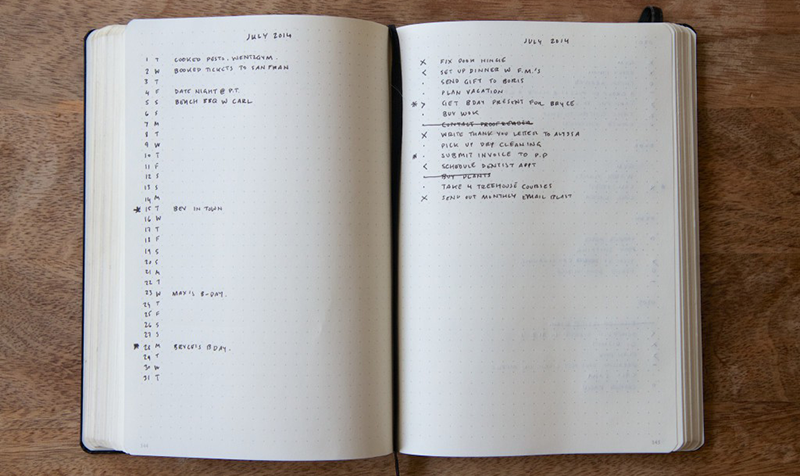 JULY 2014
1 T COOKED PESTO, WENT2GYM.
2 W BOOKED TICKETS TO SAN FRAN
3 T
4 F DATE NIGHT @ P.T.
5 S BEACH BBQ W CARL
6 S
7 M
8 T
9 W
10 T
11 F
12 S
13 S
14 M
* 15 T BEV IN TOWN
16 W
17 T
18 F
19 S
20 S
21 M
22 T
23 W MAX'S B-DAY.
24 T
25 F
26 S
27 S
* 28 M BRYCE'S BDAY.
29 T
30 W
31 T
JULY 2014
X FIX DOOR HINGE
< SET UP DINNER W F.M.'S
· SEND GIFT TO BORIS
· PLAN VACATION
* > GET BDAY PRESENT FOR BRYCE
· BUY WOK
· CONTACT PROOFREADER
X WRITE THANK YOU LETTER TO ALYSSA
· PICK UP DRY CLEANING
* · SUBMIT INVOICE TO P.P
< SCHEDULE DENTIST APPT
· BUY PLANTS
· TAKE 4 TREEHOUSE COURSES
X SEND OUT MONTHLY EMAIL BLAST